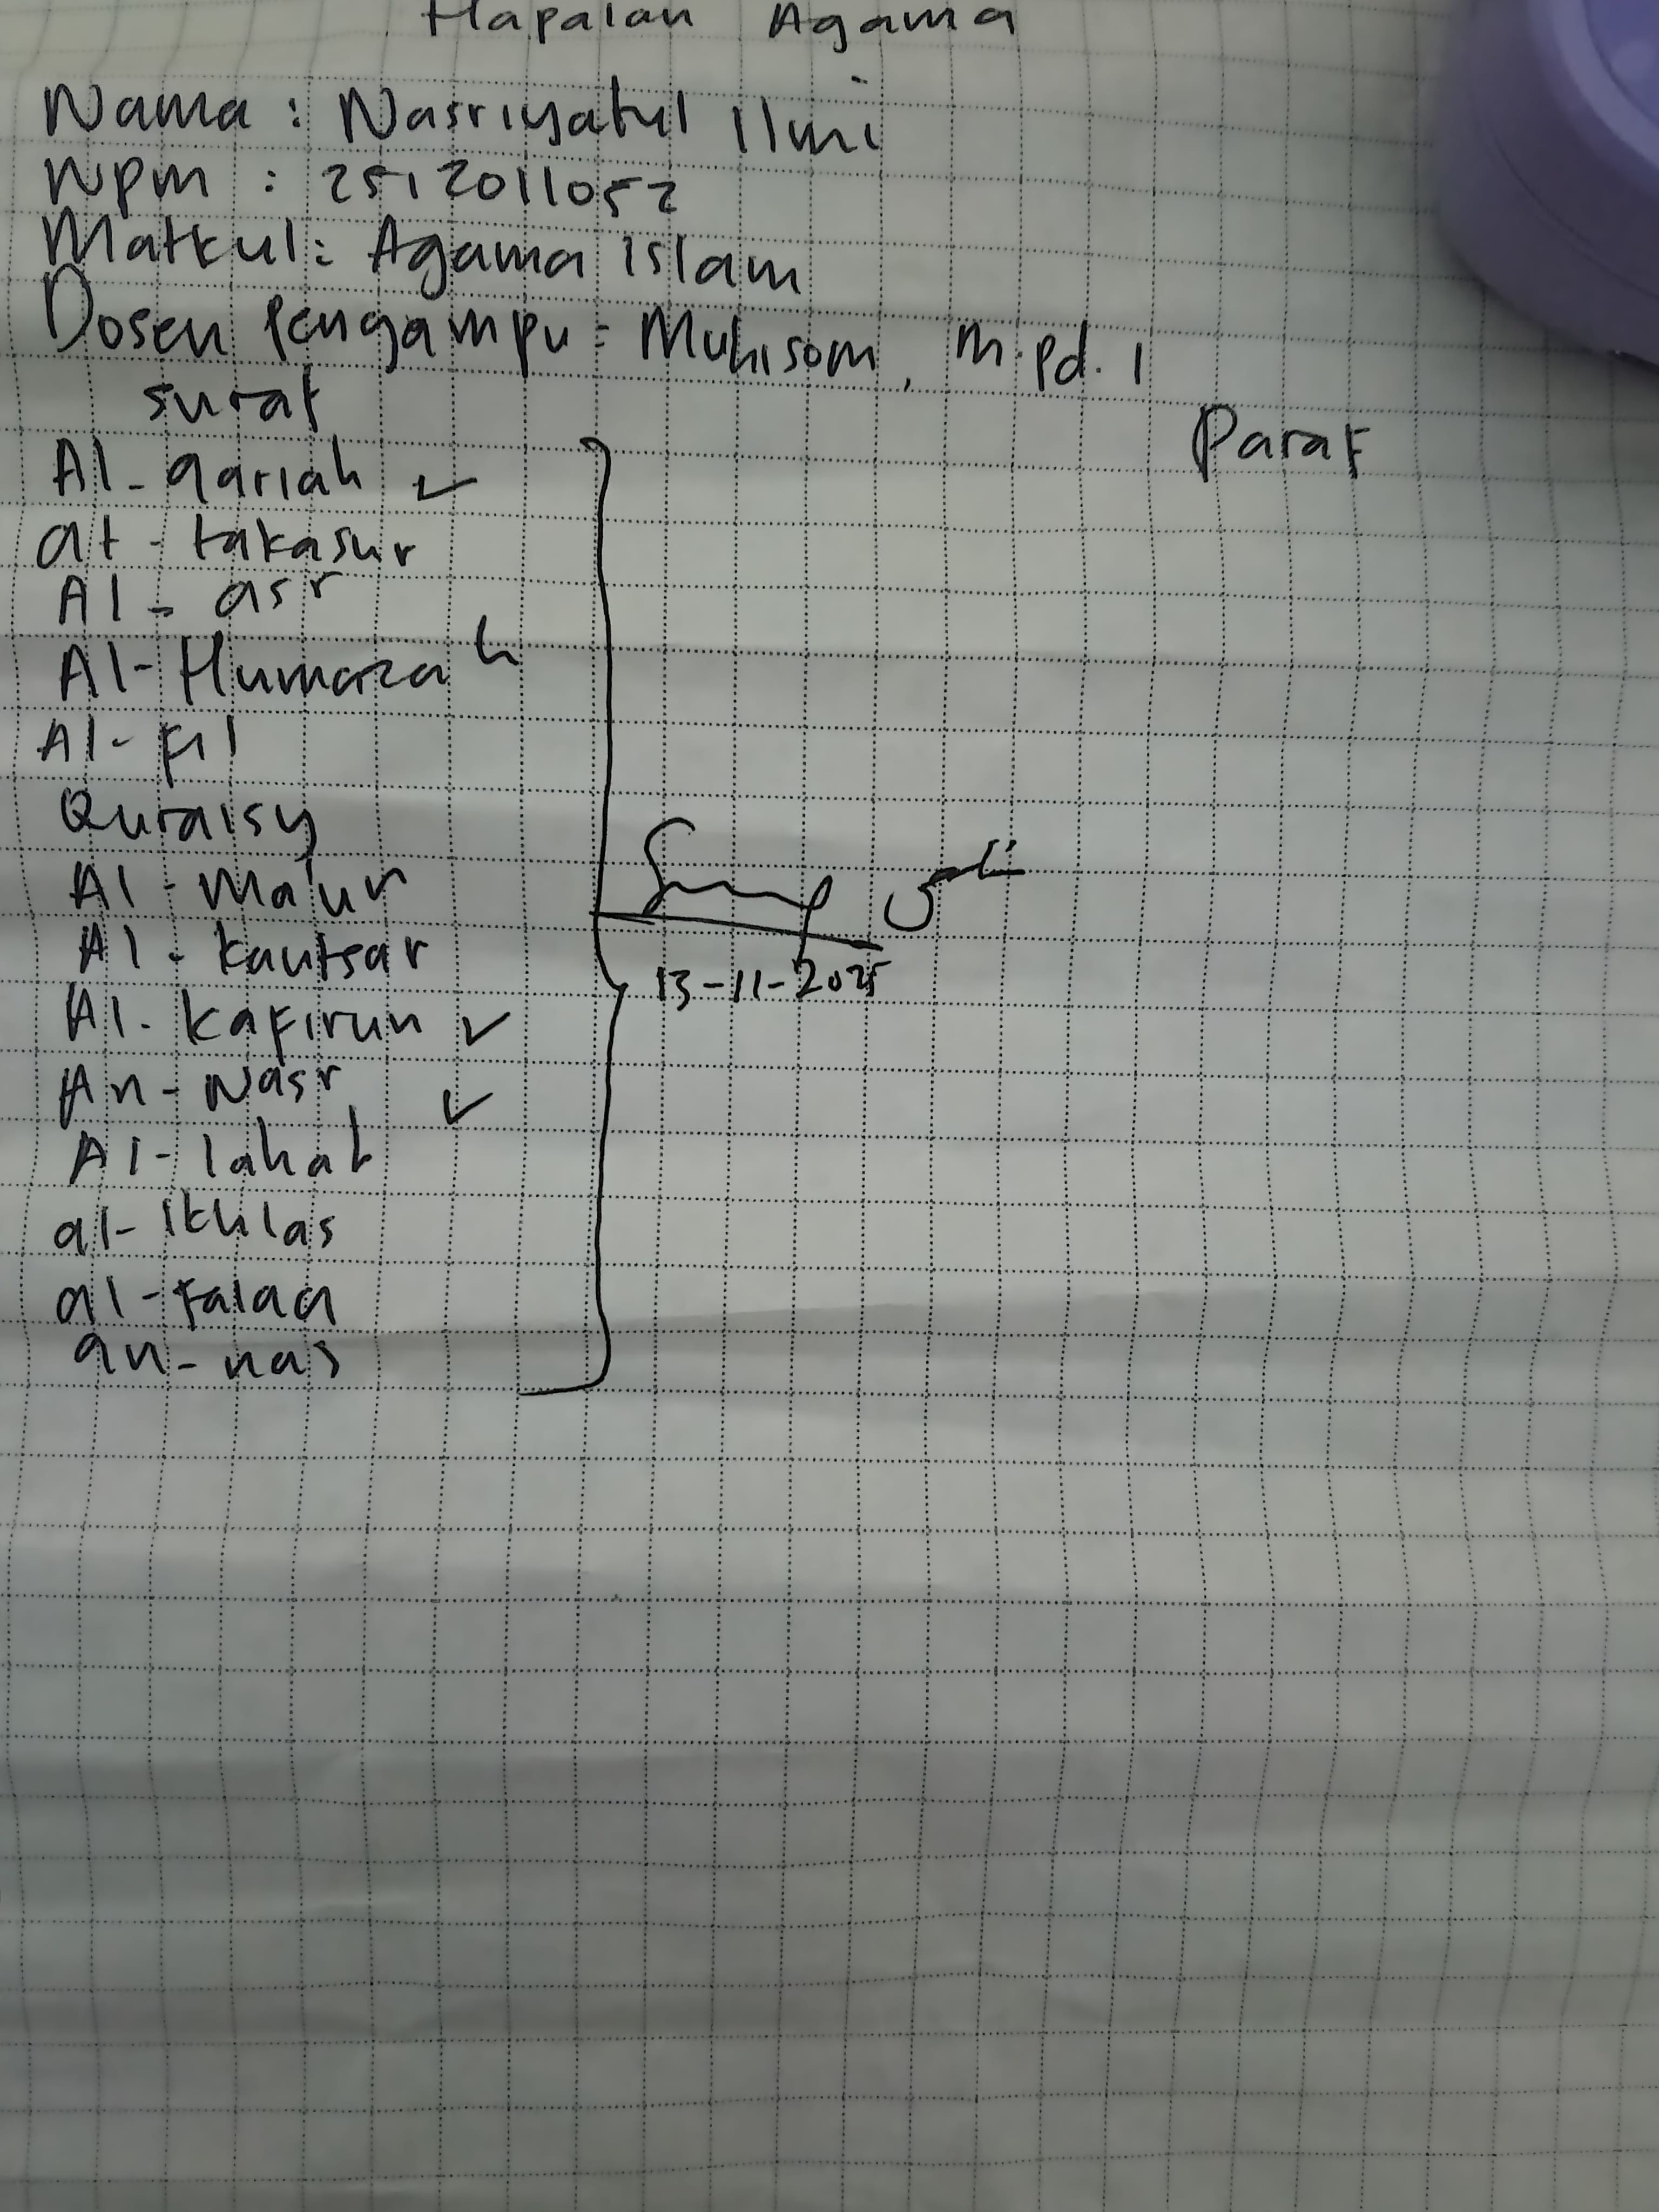 Hapalan Agama
Nama : Nasriyatul Ilmi
Npm : 2512011052
Matkul : Agama islam
Dosen Pengampu : Muhisom, M.pd.I
surat
Paraf
Al-qariah ✓
at-takasur
Al-asr
Al-Humazah
Al-fil
Quraisy
Al-Ma'un
Al-kautsar
13-11-2025
Al-kafirun ✓
An-Nasr
Al-lahab ✓
al-ikhlas
al-falaq
an-nas